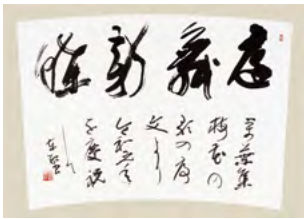 庭舞新蝶
萬葉集
梅花の
歌の序
文より
令和元年
を慶祝